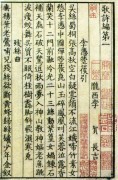 歌詩編第一
隴西李賀長吉
李憑箜篌引
吳絲蜀桐張高秋空白凝雲頹不流啼竹素女
愁李憑中國彈箜篌崑山玉碎鳳凰叫芙蓉泣露香
蘭笑十二門前融冷光二十三絲動紫皇女媧鍊石補
天處石破天驚逗秋雨夢入神山教神嫗老魚跳
波瘦蛟舞吳質不眠倚桂樹露腳斜飛濕寒兔
殘絲曲
垂楊葉老鶯哺兒殘絲欲斷黃蜂歸綠鬢少年金釵